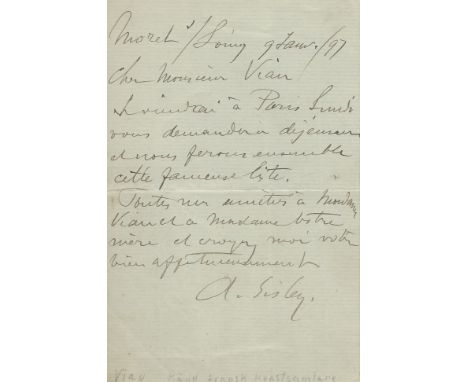 Moret s/Loing 9 Janv./97
Cher Monsieur Viau
Je viendrai à Paris Lundi
vous demander à déjeuner
et nous ferons ensemble
cette fameuse liste.
Toutes mes amitiés à Madame
Viau et à Madame votre
mère et croyez moi votre
bien affectueusement
A. Sisley.
Viau